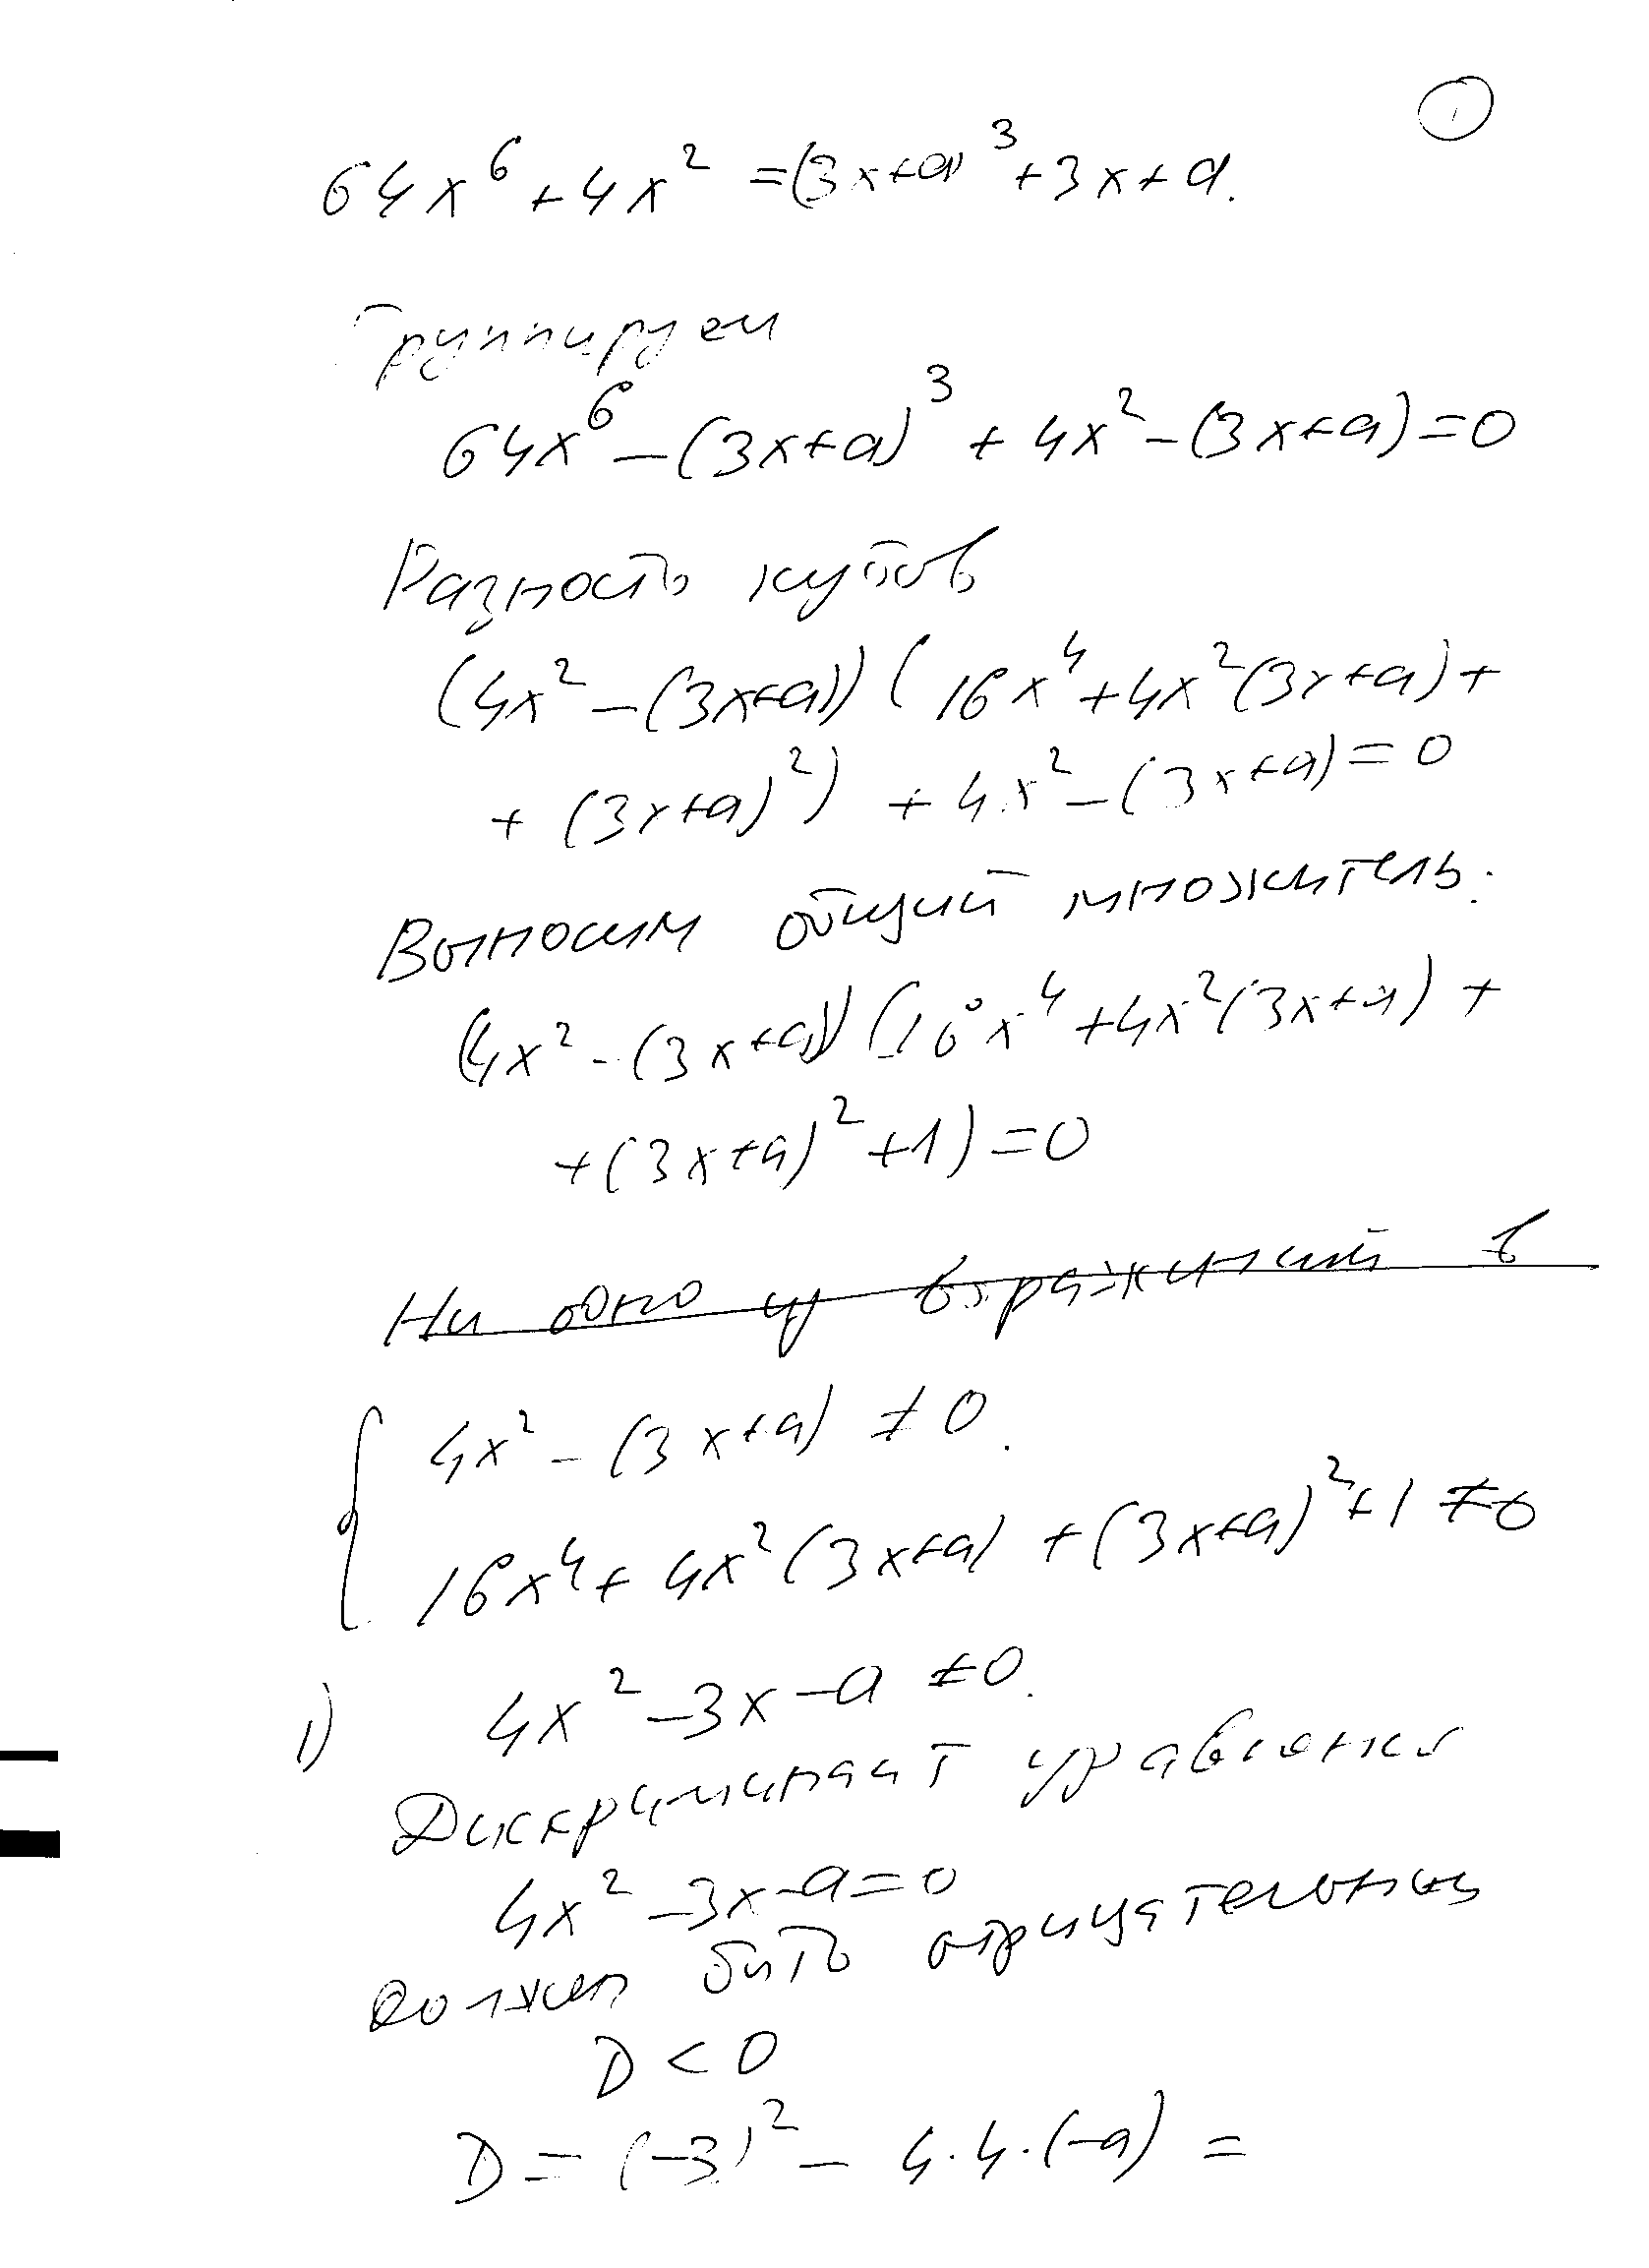 1
64x⁶ + 4x² = (3x+a)³ + 3x + a.
Группируем
64x⁶ - (3x+a)³ + 4x² - (3x+a) = 0
Разность кубов
(4x² - (3x+a)) (16x⁴ + 4x²(3x+a) +
+ (3x+a)²) + 4x² - (3x+a) = 0
Выносим общий множитель.
(4x² - (3x+a)) (16x⁴ + 4x²(3x+a) +
+ (3x+a)² + 1) = 0
Ни одно из выражений в
4x² - (3x+a) ≠ 0.
16x⁴ + 4x²(3x+a) + (3x+a)² + 1 ≠ 0
1) 4x² - 3x - a ≠ 0.
Дискриминант уравнения
4x² - 3x - a = 0
должен быть отрицательным
D < 0
D = (-3)² - 4·4·(-a) =